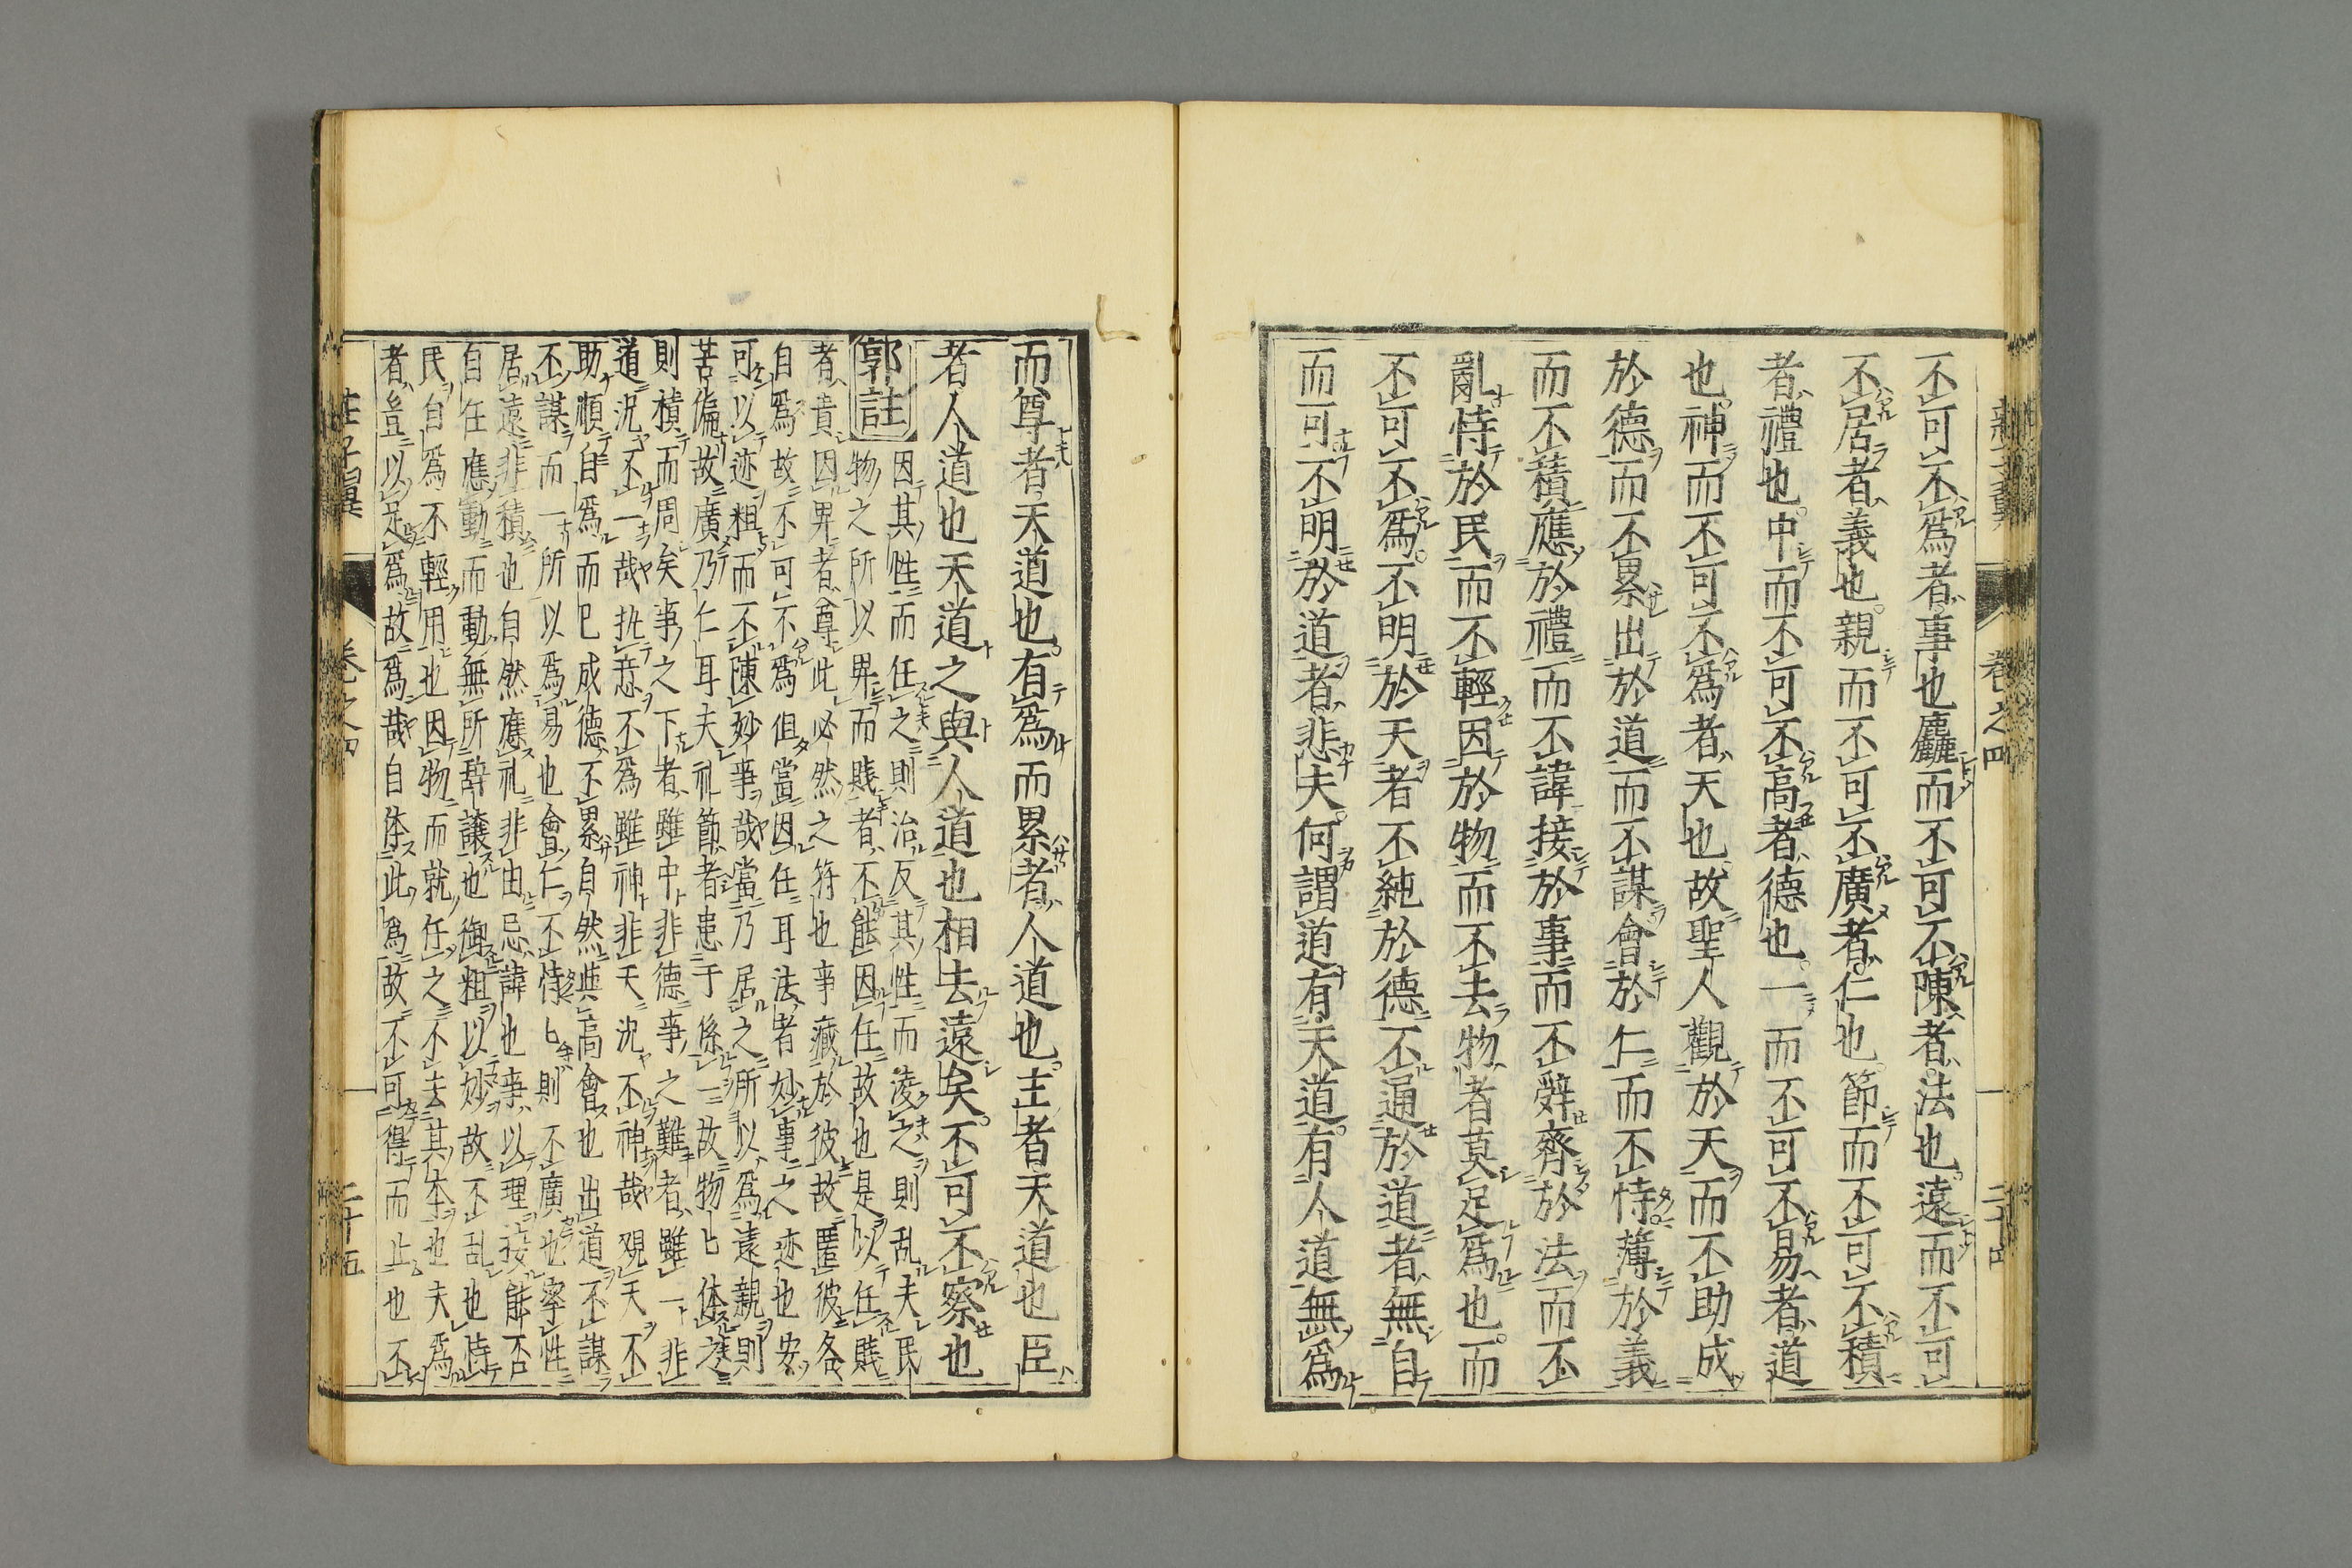 不可不爲者事也麤而不可不陳者法也遠而不可
不居者義也親而不可不廣者仁也節而不可不積
者禮也中而不可不高者德也一而不可不易者道
也神而不可不爲者天也故聖人觀於天而不助成
於德而不累出於道而不謀會於仁而不恃薄於義
而不積應於禮而不諱接於事而不辭齊於法而不
亂恃於民而不輕因於物而不去物者莫足爲也而
不可不爲不明於天者不純於德不通於道者無自
而可不明於道者悲夫何謂道有天道有人道無爲
而尊者天道也有爲而累者人道也主者天道也臣
者人道也天道之與人道也相去遠矣不可不察也
郭註 因其性而任之則治反其性而淩之則乱夫民
物之所以界而賤者不能因任故也是以任賤
者貴因界者尊此必然之符也事藏於彼故匿彼各
自爲故不可不爲但當因任耳法者妙事之迹也安
可以迹粗而不陳妙事哉當乃居之所以爲遠親則
苦偏故廣乃仁耳夫礼節者患于係一故物匕体之
則積而周矣事之下者雖中非德事之難者雖一非
道況不一哉执意不爲雖神非天況不神哉观天不
助順自爲而已成德不累自然與高會也出道不謀
不謀而一所以爲易也會仁不恃匕則不廣也率性
居遠非積也自然應礼非由忌諱也事以理接能否
自任應動而動無所辞讓也御粗以妙故不乱也恃
民自爲不輕用也因物而就任之不去其本也夫爲
者豈以足爲故爲哉自体此爲故不可得而止也不
莊子翼 卷之四 二十五